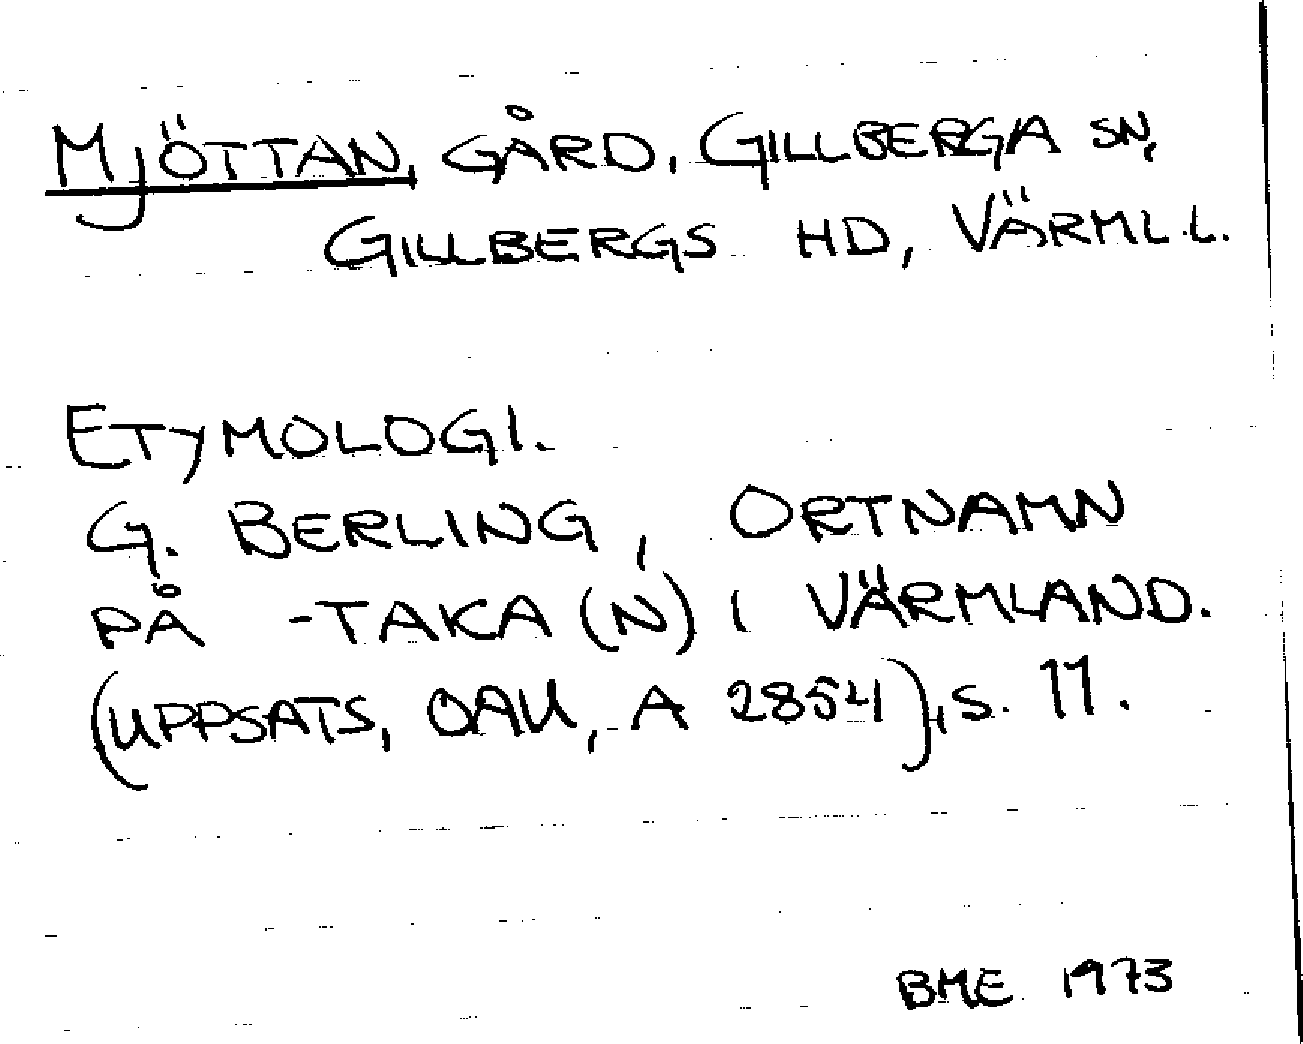 MJÖTTAN, GÅRD, GILLBERGA SN,
GILLBERGS HD, VÄRML. L.
ETYMOLOGI.
G. BERLING, ORTNAMN
PÅ -TAKA(N) I VÄRMLAND.
(UPPSATS, OAU, A 2854), S. 11.
BME 1973